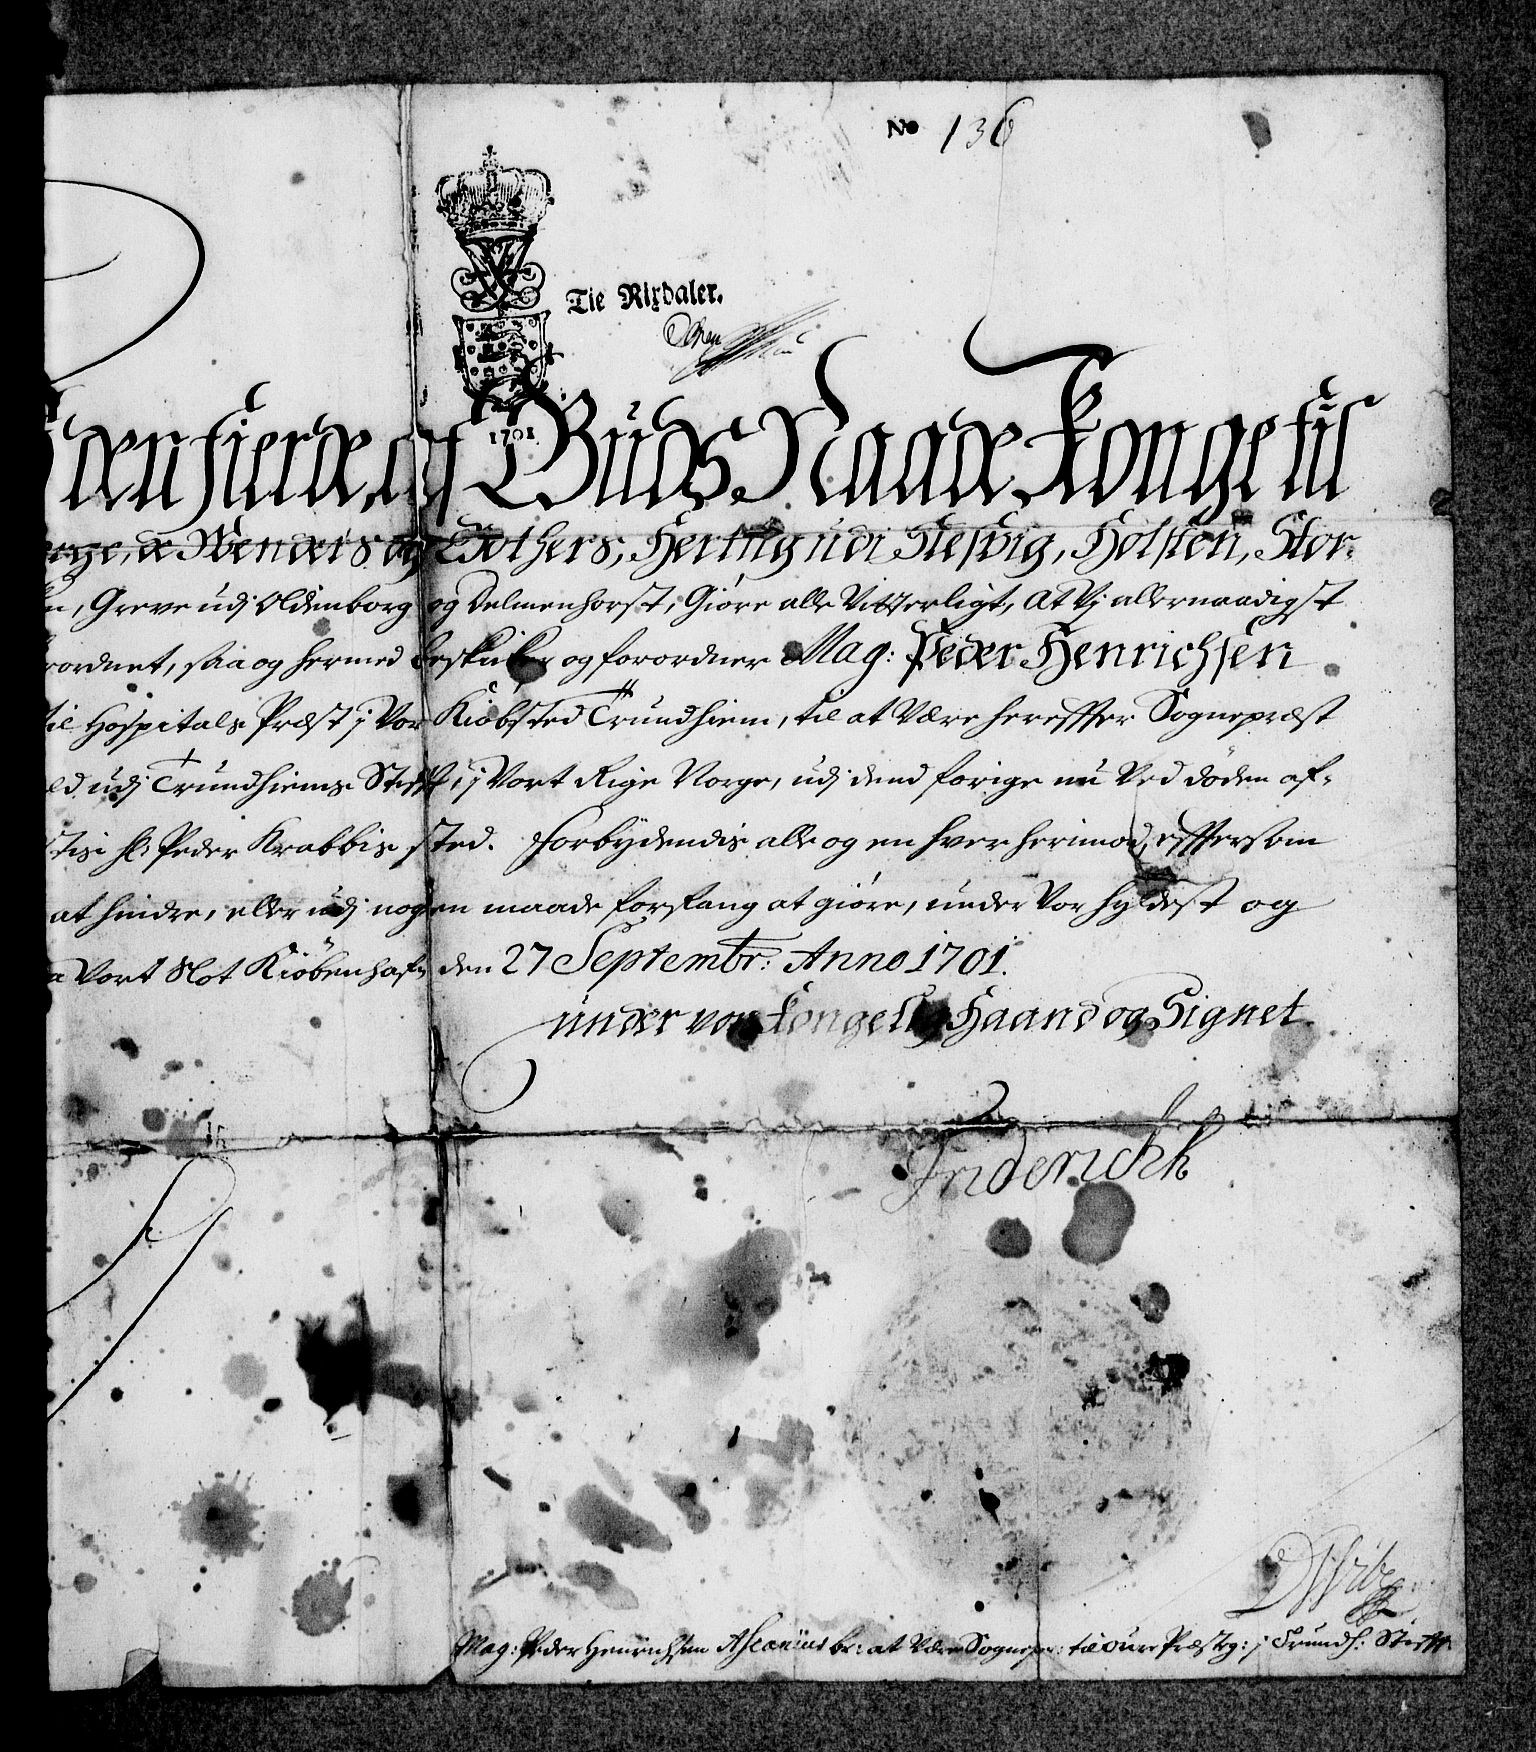 No 136
Tie Rixdaler.
1701.
den fierde, af Guds Naade Konge til
de Wenders og Gothers, Hertug udi Slesvig, Holsten, Stor-
Greve udj Oldenborg og Delmenhorst, Giøre alle Vitterligt, At Vj allernaadigst
saa og hermed beskicker og forordner Mag: Peder Henrichsen
til Hospitals Præst j Vor Kiøbsted Trundhiem, til at Være herefffter Sognepræst
udj Trundhiems Stifft ij Vort Rige Norge, udj dend forige nu Ved døden af-
Peder Krabbis sted. Forbydendis alle og en hver herimod, effftersom
at hindre, eller udj nogen maade forfang at giøre, under Vor hyldest og
Vort Slot Kiøbenhafn den 27 Septembr: Anno 1701.
under vor Kongelig Haand og Signet.
Friderich
Mag: Peder Henrichsen Ascanius be: at Være Sognepr: til oure Præsteg: j Trundh: Stifft.